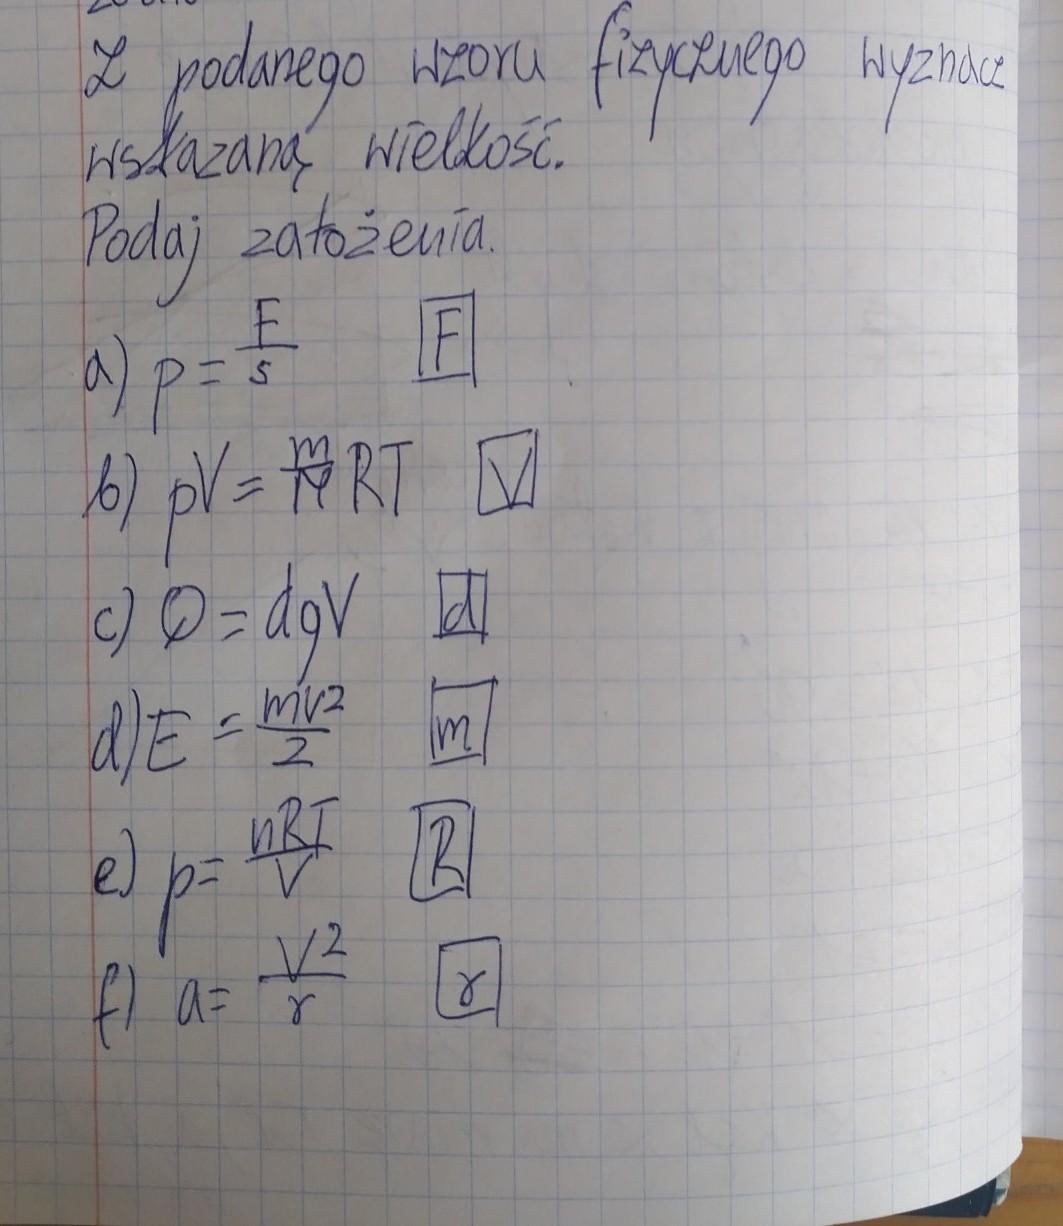 Z podanego wzoru fizycznego wyznacz
wskazaną wielkość.
Podaj założenia.
a) p = F/s [F]
b) pV = m/M RT [V]
c) Q = dgV [d]
d) E = mv²/2 [m]
e) p = nRT/V [R]
f) a = V²/r [r]